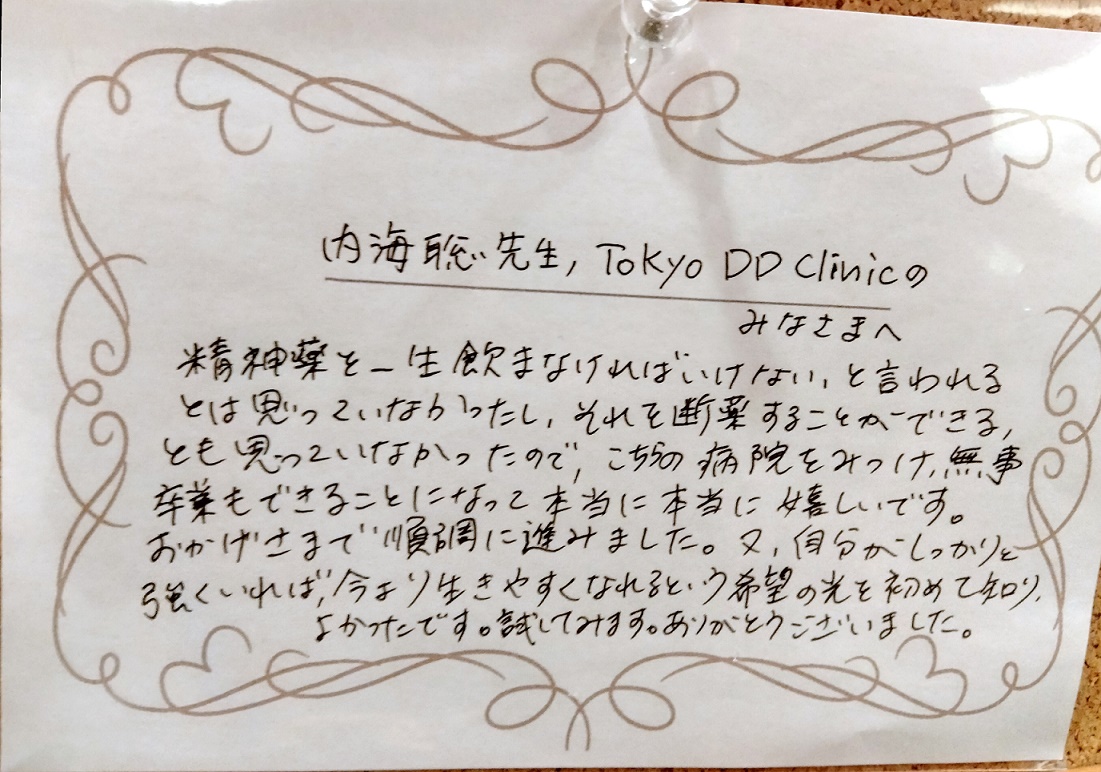 内海聡先生, Tokyo DD Clinicの
みなさまへ
精神薬を一生飲まなければいけない、と言われる
とは思っていなかったし、それを断薬することができる,
とも思っていなかったので, こちらの病院をみつけ、無事
卒業もできることになって本当に本当に嬉しいです。
おかげさまで順調に進みました。又, 自分がしっかりと
強くいれば, 今より生きやすくなれるという希望の光を初めて知り、
よかったです。試してみます。ありがとうございました。